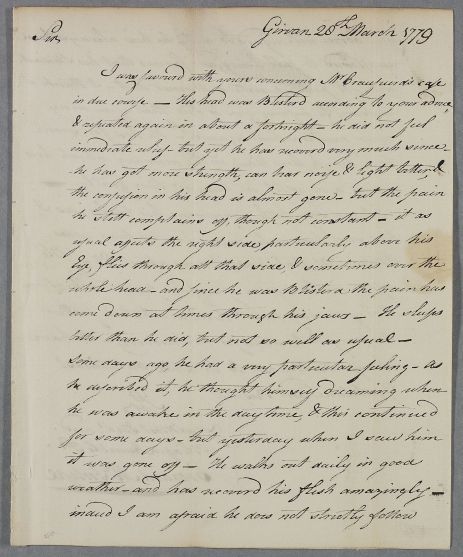 Girvan 28th March 1779
Sir
I was favourd with yours concerning Mr Craufuurd's case
in due course. — His head was Blisterd according to your advice,
& repeated again in about a fortnight — he did not feel
immediate relief — but yet he has recoverd very much since —
he has got more strength, can bear noise & light better &
the confusion in his head is almost gone — but the pain
he still complains off, though not constant — it as
usual affects the right side particularly above his
Eye, flies through all that side, & sometimes over the
whole head — and since he was Blisterd the pain has
come down at times through his jaws — He sleeps
better than he did, but not so well as usual —
Some days ago he had a very particular feeling — As
he described it, he thought himself dreaming when
he was awake in the daytime, & this continued
for some days — but yesterday when I saw him
it was gone off — He walks out daily in good
weather — and has recoverd his flesh amazingly —
indeed I am afraid he does not strictly follow